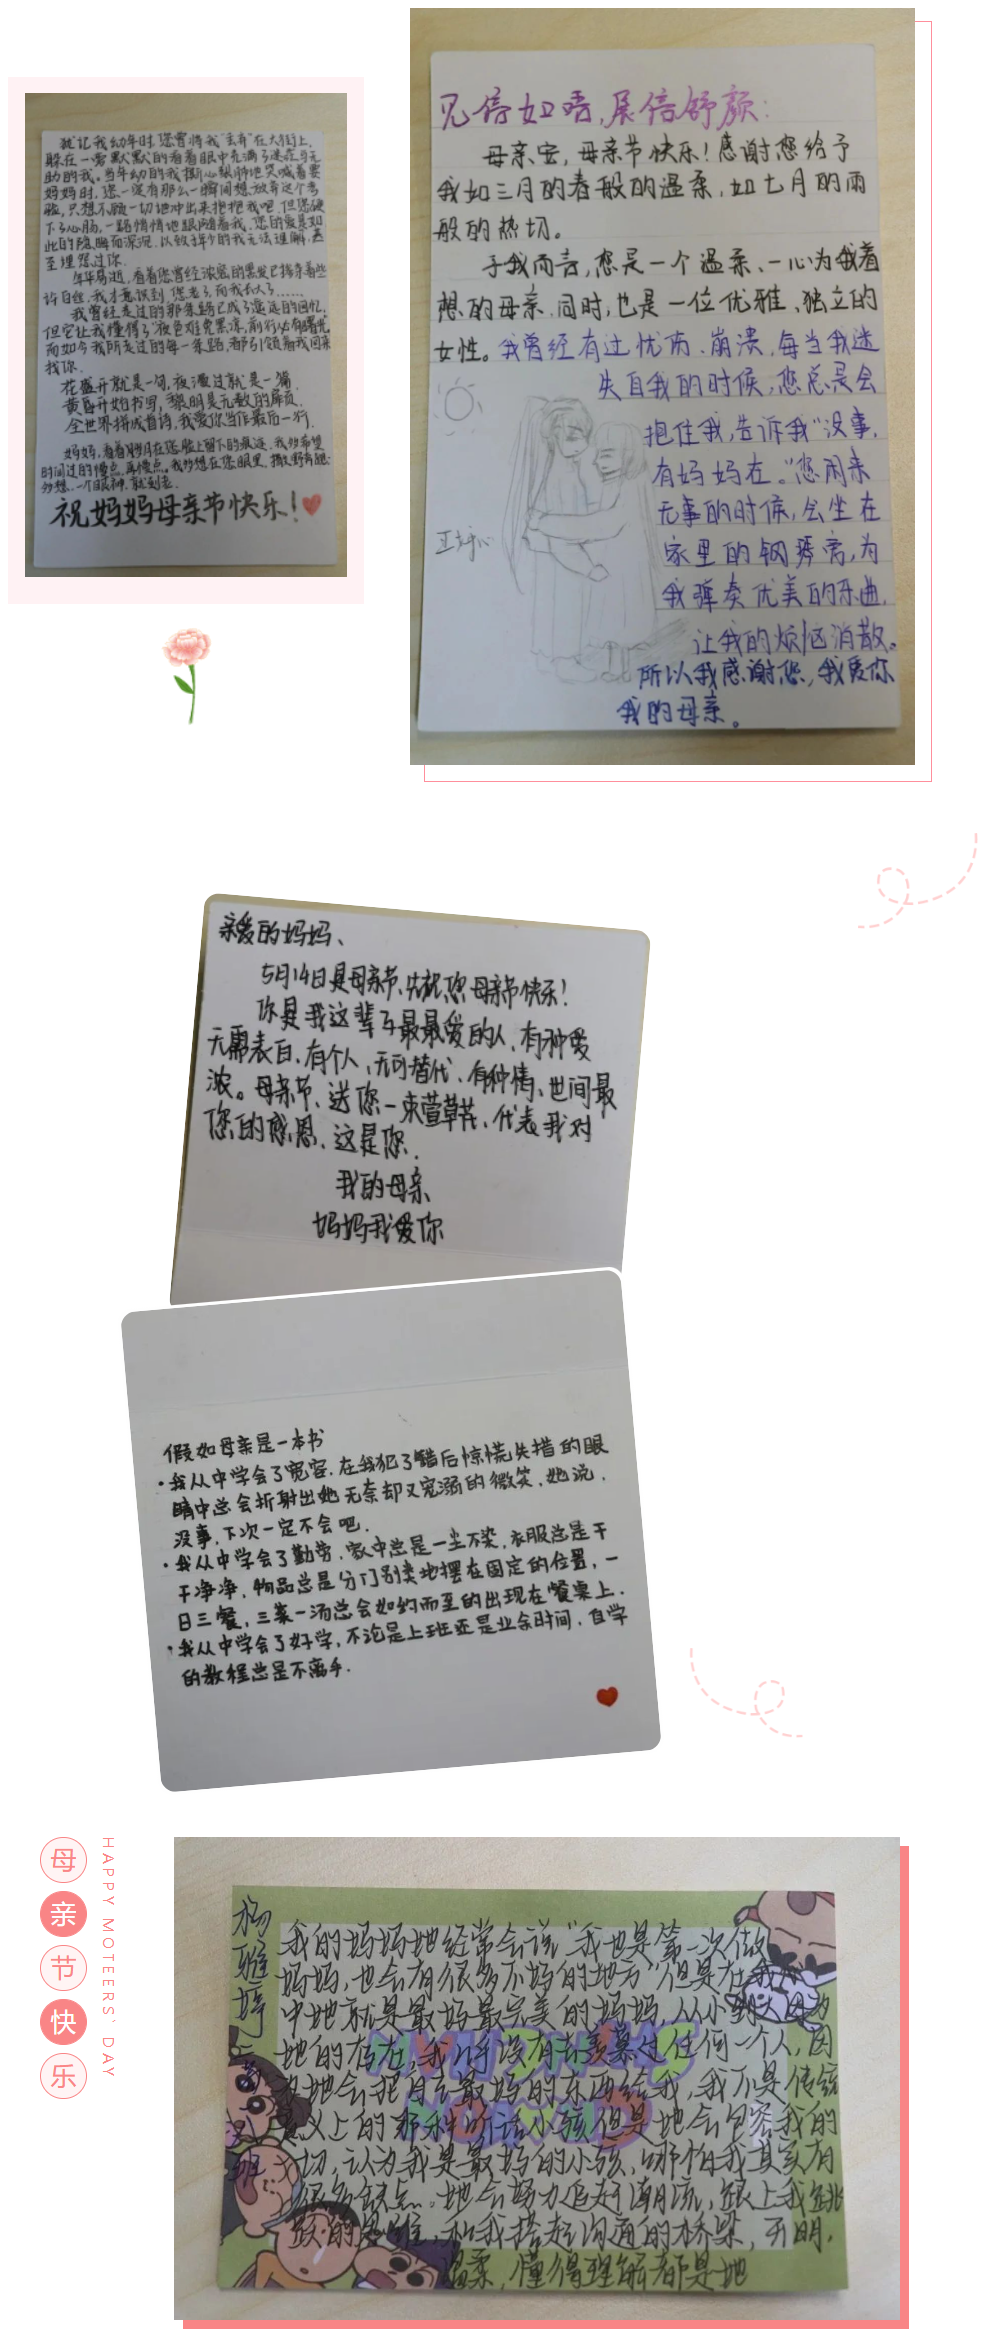 犹记我幼年时,您曾将我"丢弃"在大街上,
躲在一旁默默的看着眼中充满了迷茫与无
助的我。当年幼的我撕心裂肺地哭喊着要
妈妈时,您一定有那么一瞬间想放弃这个考
验,只想不顾一切地冲出来抱抱我吧,但您硬
下了心肠,一路悄悄地跟随着我,您的爱是如
此的隐晦而深沉,以致于年少的我无法理解,甚
至埋怨过你.
年华易逝,看着您曾经浓密的黑发已掺杂着些
许白丝,我才意识到,您老了,而我长大了……
我曾经走过的那条路已成了遥远的回忆,
但它让我懂得了夜色难免黑凉,前行必有曙光.
而如今我所走过的每一条路,都引领着我回来
找你.
花盛开就是一句,夜漫过就是一篇.
黄昏开始书写,黎明是无数的扉页.
全世界拼成首诗,我爱你当作最后一行.
妈妈,看着岁月在您脸上留下的痕迹,我多希望
时间过的慢点,再慢点,我多想在您眼里,撒野奔跑.
多想,一个眼神,就到老.
祝妈妈母亲节快乐!
见信如晤,展信舒颜:
母亲安,母亲节快乐!感谢您给予
我如三月的春般的温柔,如七月的雨
般的热切。
于我而言,您是一个温柔、一心为我着
想的母亲,同时,也是一位优雅、独立的
女性。我曾经有过忧伤、崩溃,每当我迷
失自我的时候,您总是会
抱住我,告诉我"没事,
有妈妈在。"您闲来
无事的时候,会坐在
家里的钢琴旁,为
我弹奏优美的乐曲,
让我的烦恼消散。
所以我感谢您,我爱你
我的母亲。
亲爱的妈妈、
5月14日是母亲节、先祝您母亲节快乐!
你是我这辈子最最爱的人,有种爱
无需表白,有个人,无可替代,有种情、世间最
浓。母亲节、送您一束萱草花、代表我对
您的感恩、这是你.
我的母亲
妈妈我爱你
假如母亲是一本书
·我从中学会了宽容,在我犯了错后惊慌失措的眼
睛中总会折射出她无奈却又宠溺的微笑,她说,
没事,下次一定不会吧.
·我从中学会了勤劳,家中总是一尘不染,衣服总是干
干净净,物品总是分门别类地摆在固定的位置,一
日三餐,三菜一汤总会如约而至的出现在餐桌上.
·我从中学会了好学,不论是上班还是业余时间,自学
的教程总是不离手.
母亲节快乐
HAPPY MOTEERS` DAY
我的妈妈她经常会说"我也是第一次做
妈妈,也会有很多不好的地方"但是在我心
中她就是最好最完美的妈妈,从小到大因为
她的存在,我几乎没有去羡慕过任何一个人,因
为她会把自己最好的东西给我,我不是传统
意义上的那种听话小孩但是她会包容我的
一切,认为我是最好的小孩,哪怕我其实有
很多缺点。她会努力追赶潮流,跟上我跳
跃的思维,和我搭起沟通的桥梁,开明,
温柔,懂得理解都是她